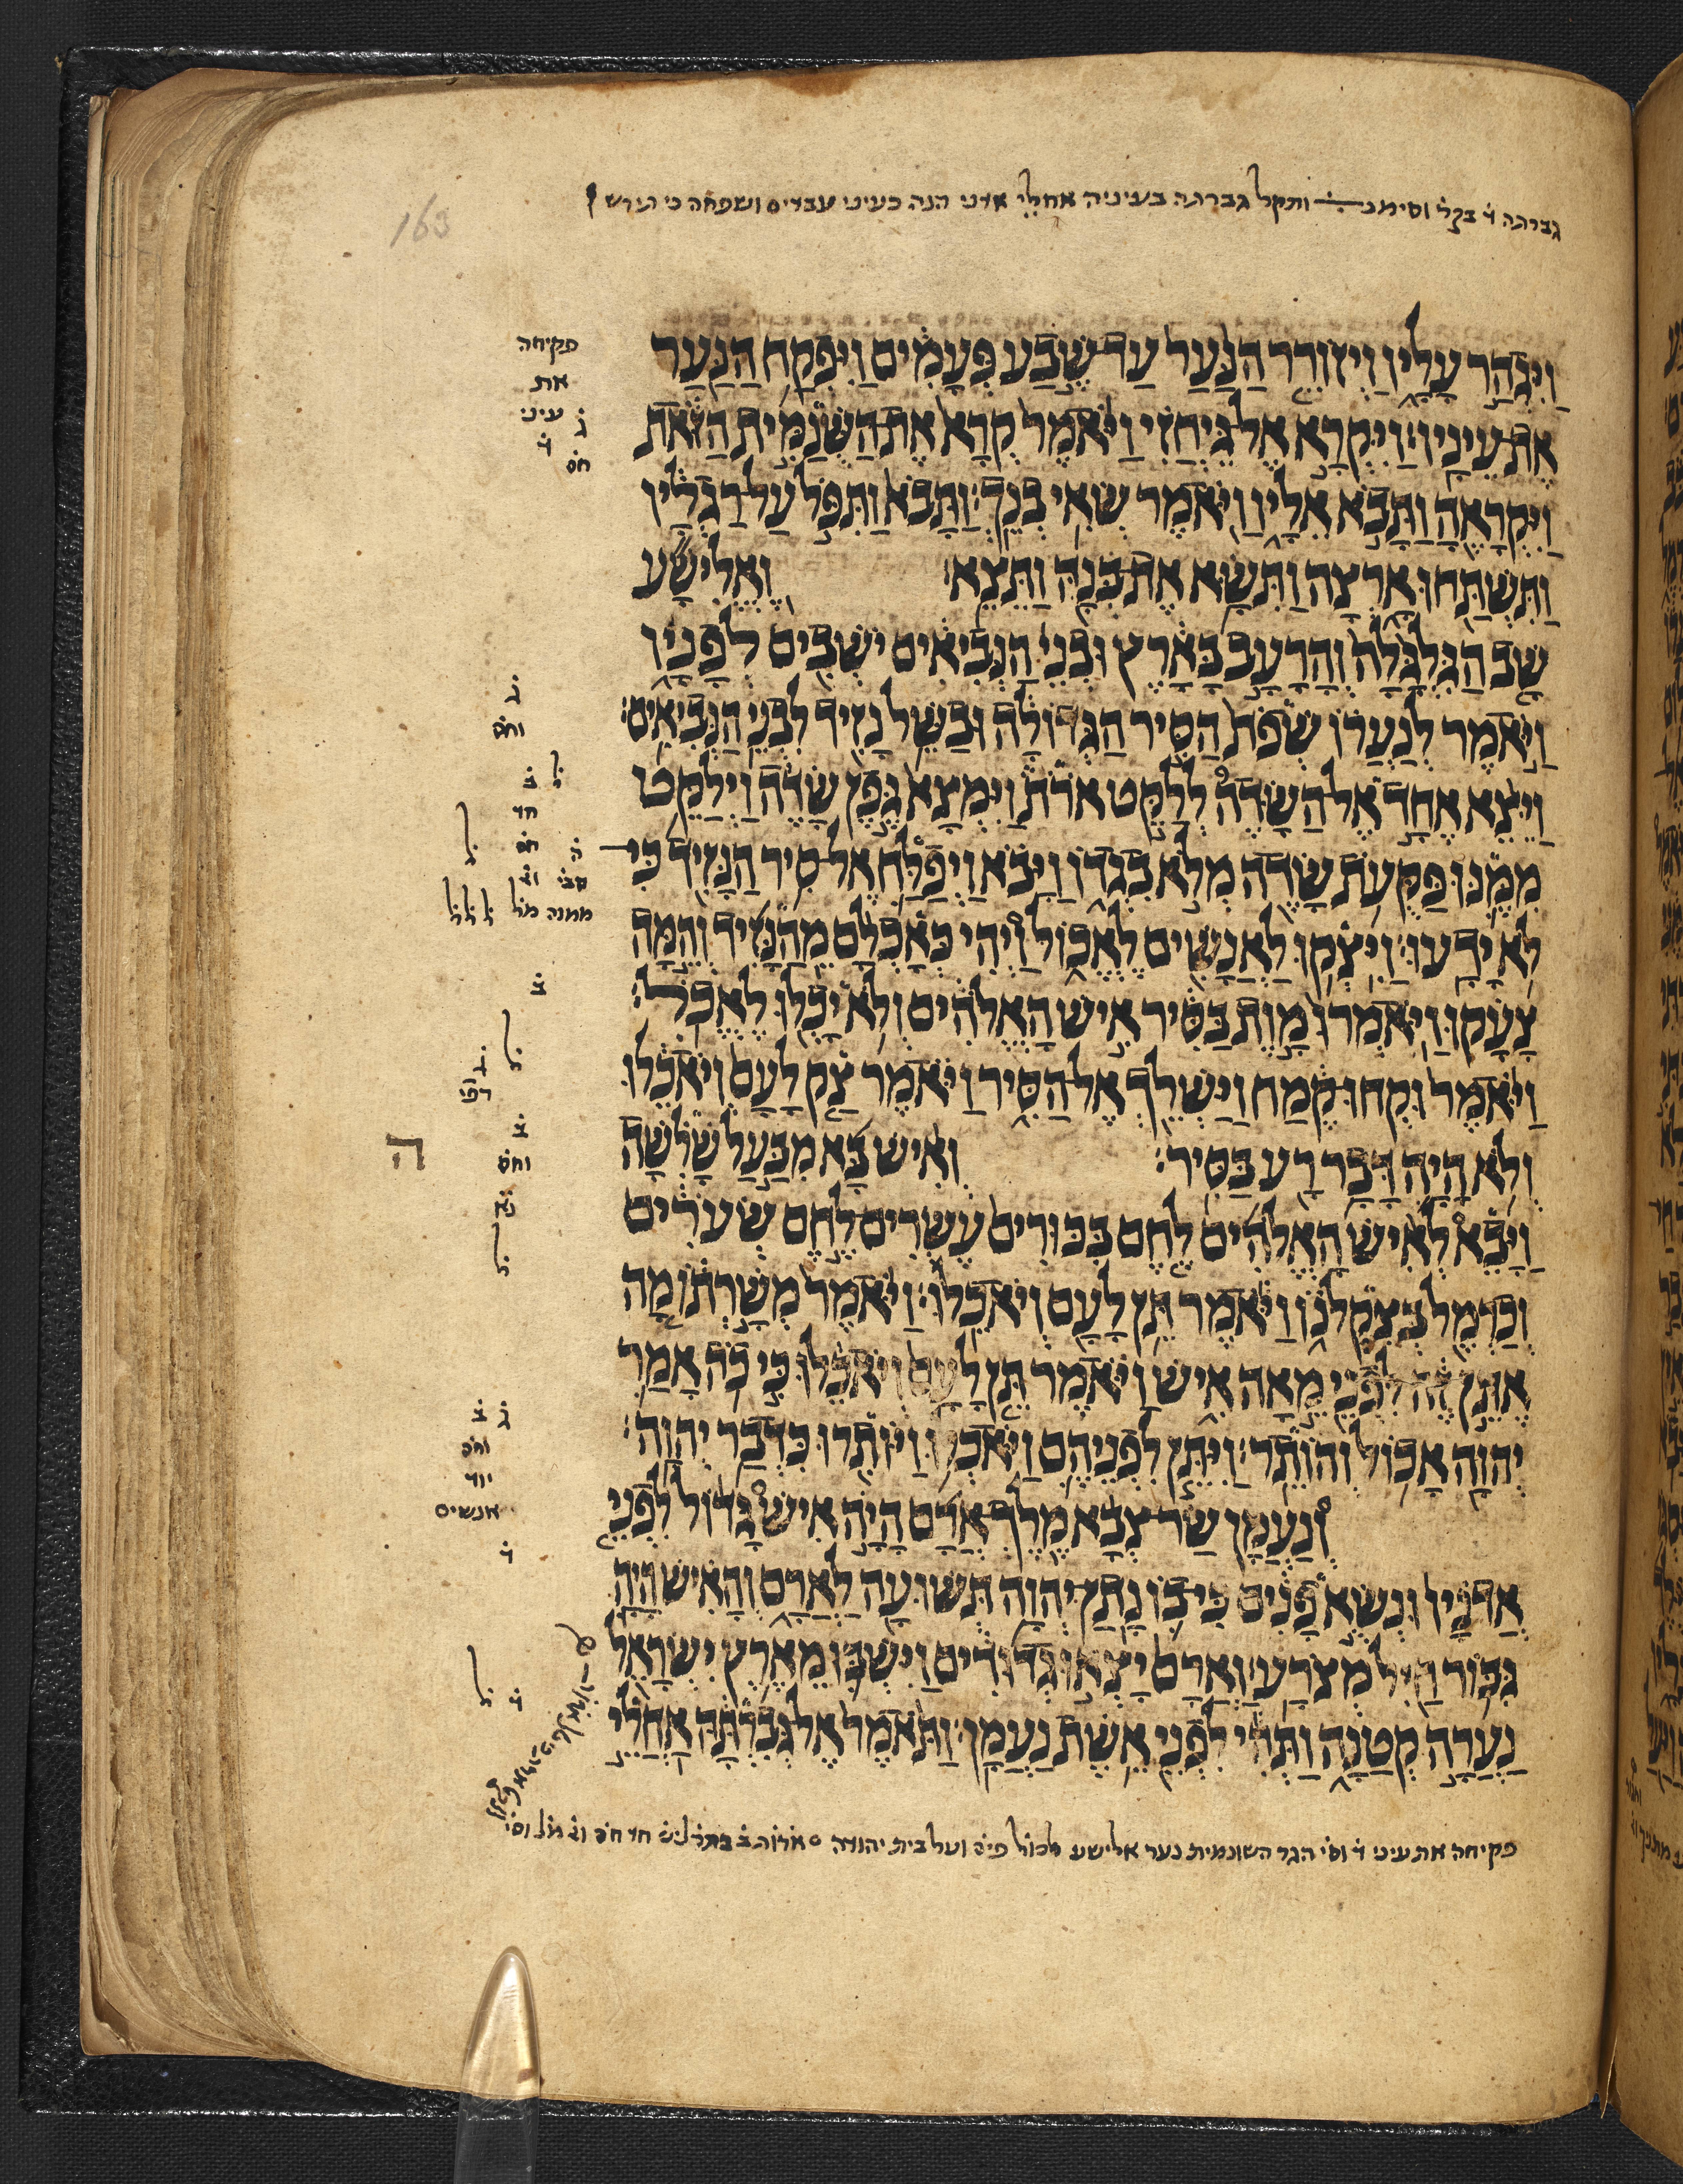 גברתה ד בקר וסימנ ותקל גברתה בעיניה אחלי אדני הנה כעיני עבדים ושפחה כי תירש
וַיִּגְהַר עָלָיו וַיְזוֹרֵר הַנַּעַר עַד שֶׁבַע פְּעָמִים וַיִּפְקַח הַנַּעַר
אֶת עֵינָיו׃ וַיִּקְרָא אֶל גֵּיחֲזִי וַיֹּאמֶר קְרָא אֶת הַשֻּׁנַמִּית הַזֹּאת
וַיִּקְרָאֶהָ וַתָּבֹא אֵלָיו וַיֹּאמֶר שְׂאִי בְנֵךְ׃ וַתָּבֹא וַתִּפֹּל עַל רַגְלָיו
וַתִּשְׁתַּחוּ אָרְצָה וַתִּשָּׂא אֶת בְּנָהּ וַתֵּצֵא׃ וֶאֱלִישָׁע
שָׁב הַגִּלְגָּלָה וְהָרָעָב בָּאָרֶץ וּבְנֵי הַנְּבִיאִים יֹשְׁבִים לְפָנָיו
וַיֹּאמֶר לְנַעֲרוֹ שְׁפֹת הַסִּיר הַגְּדוֹלָה וּבַשֵּׁל נָזִיד לִבְנֵי הַנְּבִיאִים׃
וַיֵּצֵא אֶחָד אֶל הַשָּׂדֶה לְלַקֵּט אֹרֹת וַיִּמְצָא גֶּפֶן שָׂדֶה וַיְלַקֵּט
מִמֶּנּוּ פַּקֻּעֹת שָׂדֶה מְלֹא בִגְדוֹ וַיָּבֹא וַיְפַלַּח אֶל סִיר הַנָּזִיד כִּי
לֹא יָדָעוּ׃ וַיִּצְקוּ לַאֲנָשִׁים לֶאֱכוֹל וַיְהִי כְּאָכְלָם מֵהַנָּזִיד וְהֵמָּה
צָעָקוּ וַיֹּאמְרוּ מָוֶת בַּסִּיר אִישׁ הָאֱלֹהִים וְלֹא יָכְלוּ לֶאֱכֹל׃
וַיֹּאמֶר וּקְחוּ קֶמַח וַיַּשְׁלֵךְ אֶל הַסִּיר וַיֹּאמֶר צַק לָעָם וְיֹאכֵלוּ
וְלֹא הָיָה דָּבָר רָע בַּסִּיר׃ וְאִישׁ בָּא מִבַּעַל שָׁלִשָׁה
וַיָּבֵא לְאִישׁ הָאֱלֹהִים לֶחֶם בִּכּוּרִים עֶשְׂרִים לֶחֶם שְׂעֹרִים
וְכַרְמֶל בְּצִקְלֹנוֹ וַיֹּאמֶר תֵּן לָעָם וְיֹאכֵלוּ׃ וַיֹּאמֶר מְשָׁרְתוֹ מָה
אֶתֵּן זֶה לִפְנֵי מֵאָה אִישׁ וַיֹּאמֶר תֵּן לָעָם וְיֹאכֵלוּ כִּי כֹה אָמַר
יְהוָה אָכוֹל וְהוֹתֵר׃ וַיִּתֵּן לִפְנֵיהֶם וַיֹּאכְלוּ וַיּוֹתִרוּ כִּדְבַר יְהוָה׃
וְנַעֲמָן שַׂר צְבָא מֶלֶךְ אֲרָם הָיָה אִישׁ גָּדוֹל לִפְנֵי
אֲדֹנָיו וּנְשֻׂא פָנִים כִּי בוֹ נָתַן יְהוָה תְּשׁוּעָה לַאֲרָם וְהָאִישׁ הָיָה
גִּבּוֹר חַיִל מְצֹרָע׃ וַאֲרָם יָצְאוּ גְדוּדִים וַיִּשְׁבּוּ מֵאֶרֶץ יִשְׂרָאֵל
נַעֲרָה קְטַנָּה וַתְּהִי לִפְנֵי אֵשֶׁת נַעֲמָן׃ וַתֹּאמֶר אֶל גְּבִרְתָּהּ אַחֲלֵי
פקיחה את עיני ד וסי הגר השונמית נער אלישע ועל בית יהודה
פקיחה
את
ג עיני
ד
חס
ג
וחס
ל ב
חד
חס
ממנה
ב
ל
ג
רפי
ב
וחס
ה
ל
ג ב
וחס
יוד
אנשים
ד
ל ד
163